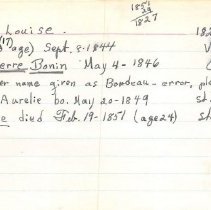 1851
24
1827
Louise. 182
(17)
age) Sept. 8-1844 V
erre Bonin May 4-1846
er name given as Bondeau-error, ple
Aurelie bo. May 20-1849 St.
e died Feb. 19-1851 (age 24) St